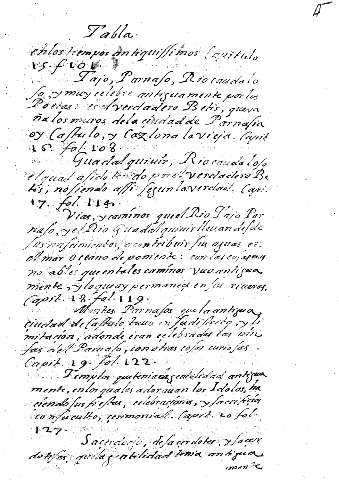 Tabla
en los tiempos antiquissimos Capitulo
15. fol 101.
Tajo, Parnaso, Rio caudalo
so, y muy celebre antiguamente por los
Poetas: es el verdadero Betis, que va
ña los muros de la ciudad de Parnaso
oy Castulo, y Cazlona la vieja. Capit
16. fol. 108.
Guadalquiuir, Rio caudaloso
el qual a sido tenido por el verdadero Be
tis, no siendo assi segun la verdad. Capi.
17. fol. 114.
Vias, y caminos que el Rio Tajo Par
naso, y el Rio Guadalquiuir lleuan desde
sus nascimientos, a contribuir sus aguas
al mar oceano de poniente: con las cosas
notables que en tales caminos vuo antigua
mente, y lo que oy permanece en sus riueras.
Capit. 18. fol. 119.
Montes Parnasos que la antigua
ciudad de Castulo tuuo en su districto, y li
mitacion, a donde eran celebradas las nin
fas del Parnaso, con otras cosas curiosas
Capit. 19. fol. 122.
Templos que tenia la gentilidad antigua
mente, en los quales adorauan los Idolos, ha
ciendo sus fiestas, celebraciones, y sacrificios
con su culto, cerimonial. Capit. 20 fol.
127.
Sacerdocio, de sacerdotes, y sacer
dotisas, que la gentilidad tenia antigua
mente